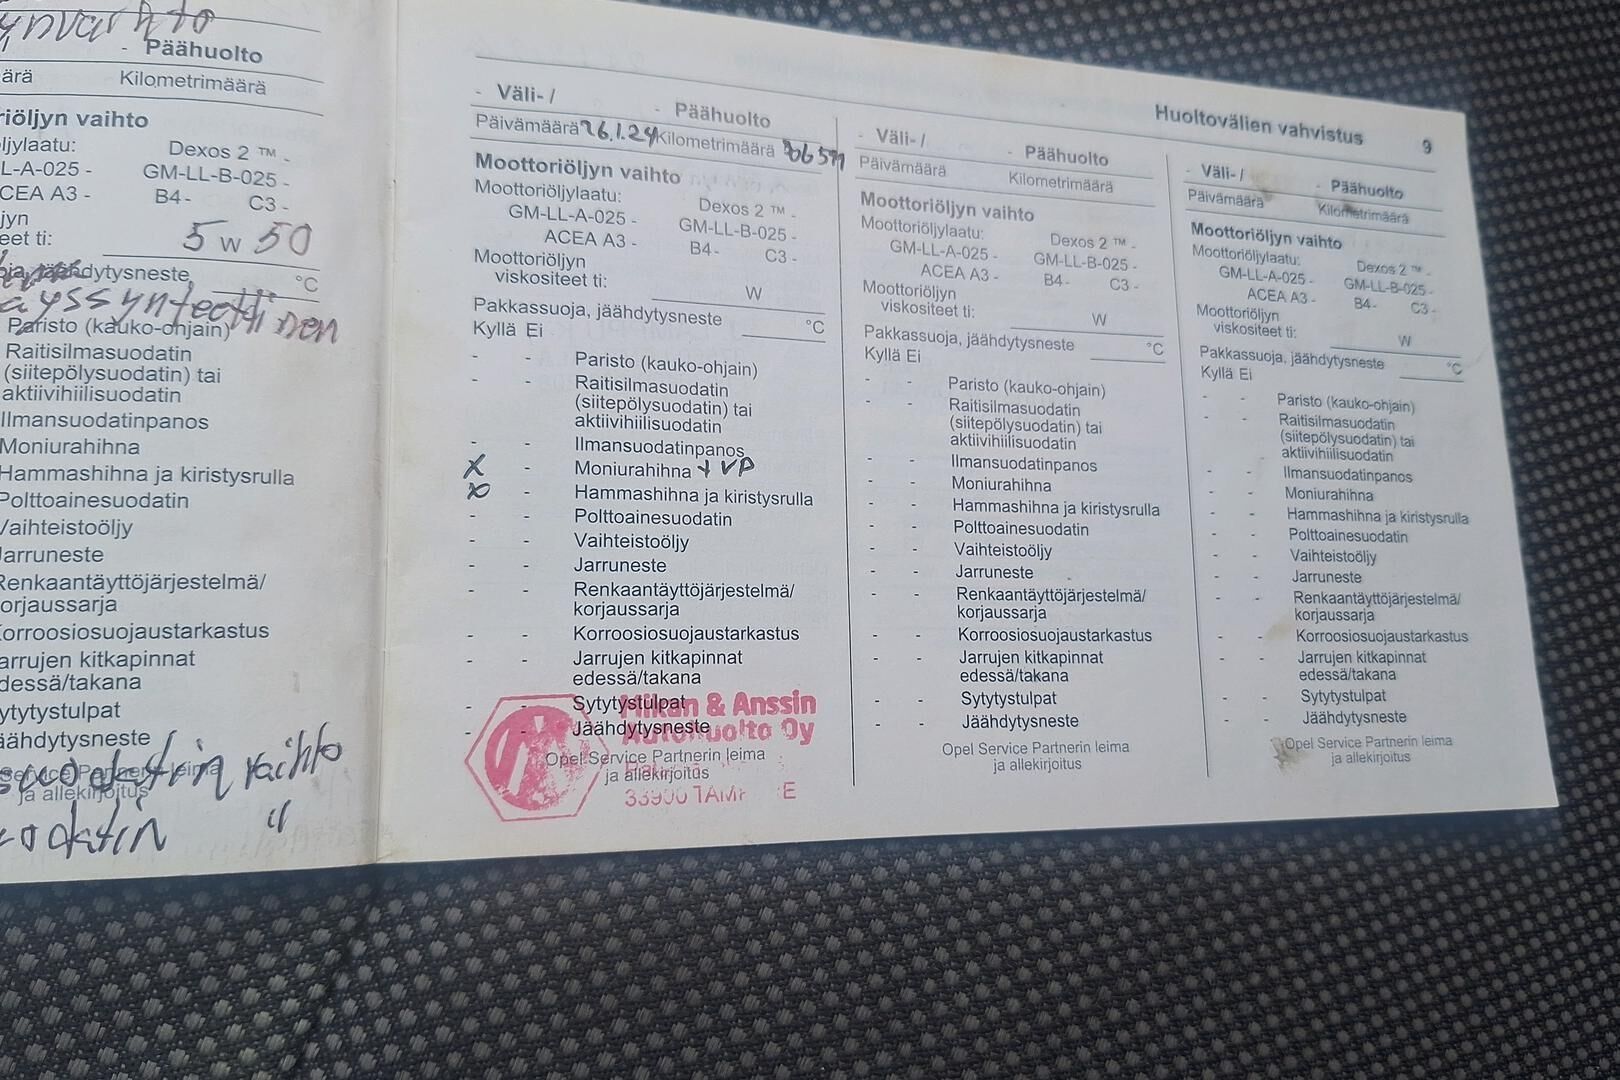 - Päähuolto
ärä Kilometrimäärä
riöljyn vaihto
ljylaatu: Dexos 2 ™ -
L-A-025 - GM-LL-B-025 -
CEA A3 - B4 - C3 -
jyn
eet ti: 5 W 50
dytysneste °C
Paristo (kauko-ohjain)
Raitisilmasuodatin
(siitepölysuodatin) tai
aktiivihiilisuodatin
Ilmansuodatinpanos
Moniurahihna
Hammashihna ja kiristysrulla
Polttoainesuodatin
Vaihteistoöljy
Jarruneste
Renkaantäyttöjärjestelmä/
korjaussarja
Korroosiosuojaustarkastus
arrujen kitkapinnat
dessä/takana
ytytystulpat
äähdytysneste
vaihto
ja allekirjoitus
"
Huoltovälien vahvistus 9
- Väli- / - Päähuolto
Päivämäärä 26.1.24 Kilometrimäärä
Moottoriöljyn vaihto
Moottoriöljylaatu: Dexos 2 ™ -
GM-LL-A-025 - GM-LL-B-025 -
ACEA A3 - B4 - C3 -
Moottoriöljyn
viskositeet ti: W
Pakkassuoja, jäähdytysneste °C
Kyllä Ei
- - Paristo (kauko-ohjain)
- - Raitisilmasuodatin
(siitepölysuodatin) tai
aktiivihiilisuodatin
- - Ilmansuodatinpanos
X - Moniurahihna + VP
X - Hammashihna ja kiristysrulla
- - Polttoainesuodatin
- - Vaihteistoöljy
- - Jarruneste
- - Renkaantäyttöjärjestelmä/
korjaussarja
- - Korroosiosuojaustarkastus
- - Jarrujen kitkapinnat
edessä/takana
- - Sytytystulpat
- - Jäähdytysneste
Opel Service Partnerin leima
ja allekirjoitus
Mikan & Anssin
Autohuolto Oy
33900
- Väli- / - Päähuolto
Päivämäärä Kilometrimäärä
Moottoriöljyn vaihto
Moottoriöljylaatu: Dexos 2 ™ -
GM-LL-A-025 - GM-LL-B-025 -
ACEA A3 - B4 - C3 -
Moottoriöljyn
viskositeet ti: W
Pakkassuoja, jäähdytysneste °C
Kyllä Ei
- - Paristo (kauko-ohjain)
- - Raitisilmasuodatin
(siitepölysuodatin) tai
aktiivihiilisuodatin
- - Ilmansuodatinpanos
- - Moniurahihna
- - Hammashihna ja kiristysrulla
- - Polttoainesuodatin
- - Vaihteistoöljy
- - Jarruneste
- - Renkaantäyttöjärjestelmä/
korjaussarja
- - Korroosiosuojaustarkastus
- - Jarrujen kitkapinnat
edessä/takana
- - Sytytystulpat
- - Jäähdytysneste
Opel Service Partnerin leima
ja allekirjoitus
- Väli- / - Päähuolto
Päivämäärä Kilometrimäärä
Moottoriöljyn vaihto
Moottoriöljylaatu: Dexos 2 ™ -
GM-LL-A-025 - GM-LL-B-025 -
ACEA A3 - B4 - C3 -
Moottoriöljyn
viskositeet ti: W
Pakkassuoja, jäähdytysneste °C
Kyllä Ei
- - Paristo (kauko-ohjain)
- - Raitisilmasuodatin
(siitepölysuodatin) tai
aktiivihiilisuodatin
- - Ilmansuodatinpanos
- - Moniurahihna
- - Hammashihna ja kiristysrulla
- - Polttoainesuodatin
- - Vaihteistoöljy
- - Jarruneste
- - Renkaantäyttöjärjestelmä/
korjaussarja
- - Korroosiosuojaustarkastus
- - Jarrujen kitkapinnat
edessä/takana
- - Sytytystulpat
- - Jäähdytysneste
Opel Service Partnerin leima
ja allekirjoitus